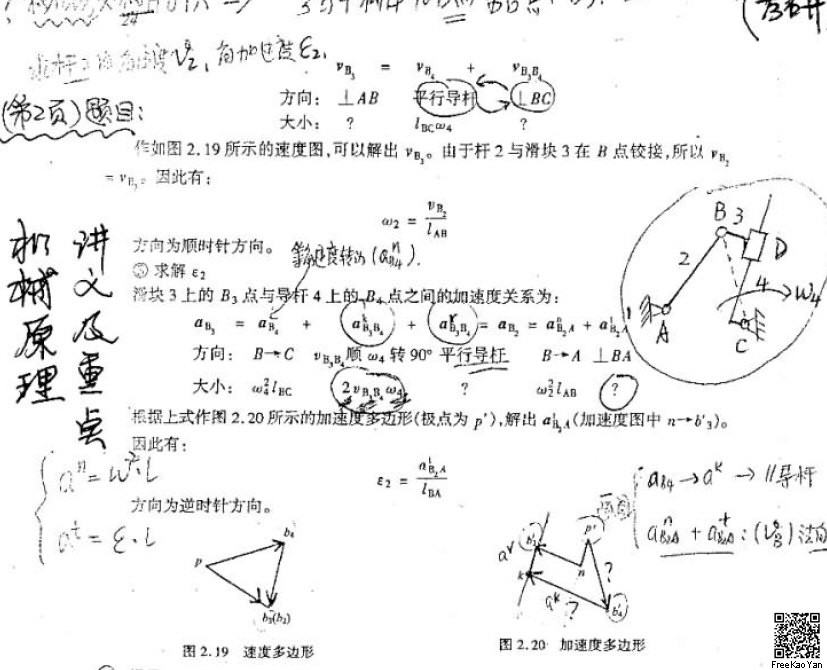 求杆2的角速度ω2,角加速度ε2.
(第2页)题目:
v_B3 = v_B4 + v_B3B4
方向: ⊥AB 平行导杆 ⊥BC
大小: ? l_BCω4 ?
作如图 2.19 所示的速度图,可以解出 v_B3。由于杆 2 与滑块 3 在 B 点铰接,所以 v_B2
= v_B3。因此有:
ω2 = v_B2 / l_AB
方向为顺时针方向。
③ 求解 ε2
滑块 3 上的 B3 点与导杆 4 上的 B4 点之间的加速度关系为:
a_B3 = a_B4 + a^k_B3B4 + a^r_B3B4 = a_B2 = a^n_B2A + a^t_B2A
方向: B→C v_B3B4 顺 ω4 转 90° 平行导杆 B→A ⊥BA
大小: ω4² l_BC 2v_B3B4ω4 ? ω2² l_AB ?
根据上式作图 2.20 所示的加速度多边形(极点为 p'),解出 a^t_B2A(加速度图中 n→b'3)。
因此有:
ε2 = a^t_B2A / l_BA
方向为逆时针方向。
机械原理
讲义及重点
a^n = ω²·L
a^t = ε·L
a_B4 → a^k → //导杆
a^n_B2A + a^t_B2A : 
B 3
D
2
4
ω4
A
C
p
b4
b3(b2)
b'3
p'
a^r
n
?
k
a^k ?
b'4
图 2.19 速度多边形
图 2.20 加速度多边形
FreeKaoYan